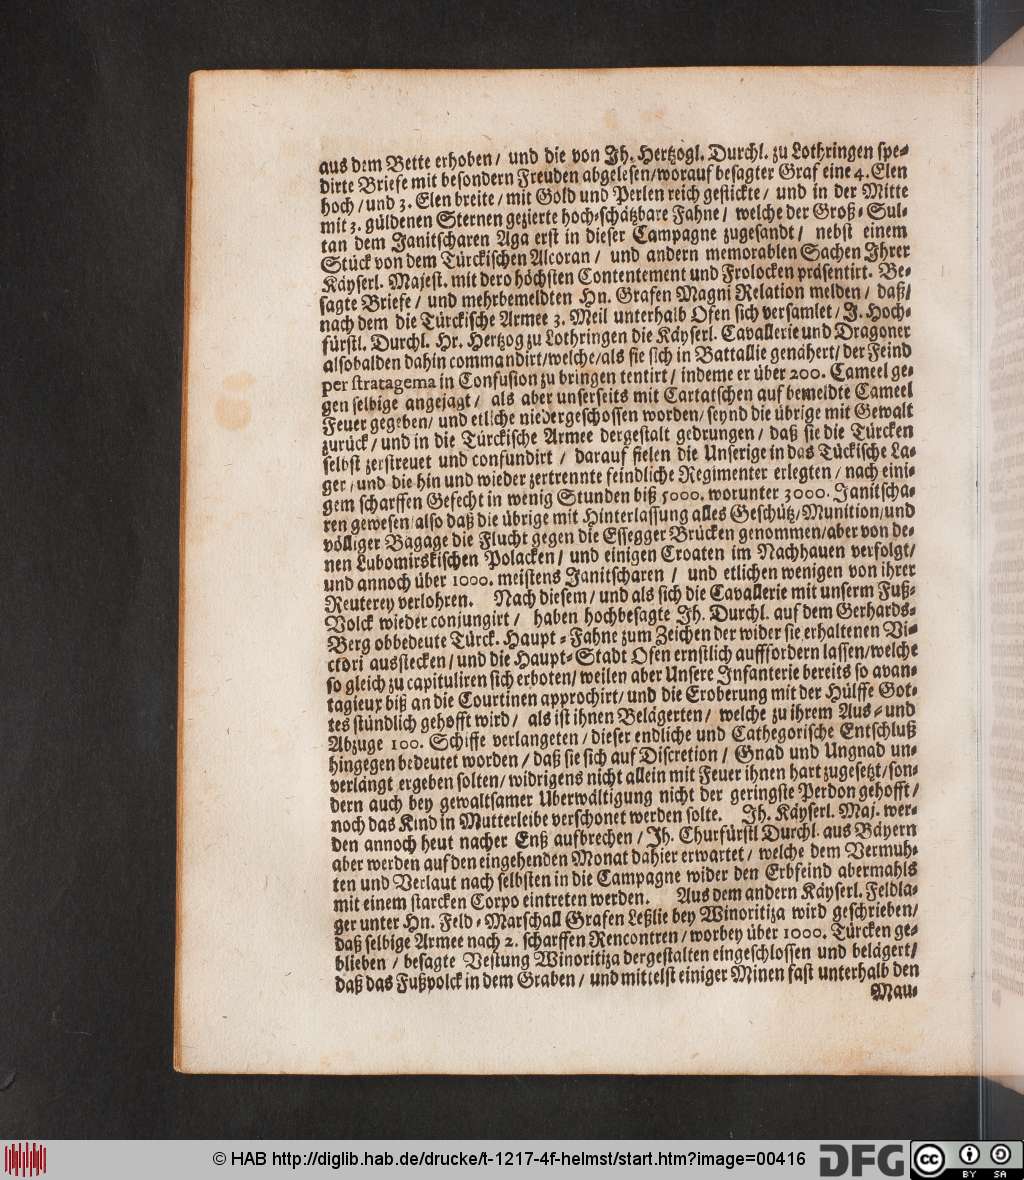 aus dem Bette erhoben/ und die von Ih. Hertzogl. Durchl. zu Lothringen spe-
dirte Briefe mit besondern Freuden abgelesen/worauf besagter Graf eine 4. Elen
hoch/und 3. Elen breite/mit Gold und Perlen reich gestickte/ und in der Mitte
mit 3. güldenen Sternen gezierte hoch-schätzbare Fahne/ welche der Groß-Sul-
tan dem Janitscharen Aga erst in dieser Campagne zugesandt/ nebst einem
Stück von dem Türckischen Alcoran/ und andern memorablen Sachen Ihrer
Käyserl. Majest. mit dero höchsten Contentement und Frolocken präsentirt. Be-
sagte Briefe/ und mehrbemeldten Hn. Grafen Magni Relation melden/ daß/
nach dem die Türckische Armee 3. Meil unterhalb Ofen sich versamlet/ J. Hoch-
fürstl. Durchl. Hr. Hertzog zu Lothringen die Käyserl. Cavallerie und Dragoner
alsobalden dahin commandirt/welche/als sie sich in Battallie genähert/der Feind
per stratagema in Confusion zu bringen tentirt/ indeme er über 200. Cameel ge-
gen selbige angejagt/ als aber unserseits mit Cartatschen auf bemeldte Cameel
Feuer gegeben/ und etliche niedergeschossen worden/ seynd die übrige mit Gewalt
zurück/ und in die Türckische Armee dergestalt gedrungen/ daß sie die Türcken
selbst zerstreuet und confundirt/ darauf fielen die Unserige in das Tückische La-
ger/ und die hin und wieder zertrennte feindliche Regimenter erlegten/ nach eini-
gem scharffen Gefecht in wenig Stunden biß 5000. worunter 3000. Janitscha-
ren gewesen/also daß die übrige mit Hinterlassung alles Geschütz/Munition/und
völliger Bagage die Flucht gegen die Essegger Brücken genommen/aber von de-
nen Lubomirskischen Polacken/ und einigen Croaten im Nachhauen verfolgt/
und annoch über 1000. meistens Janitscharen/ und etlichen wenigen von ihrer
Reuterey verlohren. Nach diesem/ und als sich die Cavallerie mit unserm Fuß-
Volck wieder conjungirt/ haben hochbesagte Ih. Durchl. auf dem Gerhards-
Berg obbedeute Türck. Haupt-Fahne zum Zeichen der wider sie erhaltenen Vi-
ctori ausstecken/ und die Haupt-Stadt Ofen ernstlich aufffordern lassen/welche
so gleich zu capituliren sich erboten/ weilen aber Unsere Infanterie bereits so avan-
tagieux biß an die Courtinen approchirt/ und die Eroberung mit der Hülffe Got-
tes stündlich gehofft wird/ als ist ihnen Belägerten/ welche zu ihrem Aus- und
Abzuge 100. Schiffe verlangeten/ dieser endliche und Cathegorische Entschluß
hingegen bedeutet worden/ daß sie sich auf Discretion/ Gnad und Ungnad un-
verlängt ergeben solten/ widrigens nicht allein mit Feuer ihnen hart zugesetzt/son-
dern auch bey gewaltsamer Uberwältigung nicht der geringste Perdon gehofft/
noch das Kind in Mutterleibe verschonet werden solte. Ih. Käyserl. Maj. wer-
den annoch heut nacher Enß aufbrechen/ Ih. Churfürstl Durchl. aus Bäyern
aber werden auf den eingehenden Monat dahier erwartet/ welche dem Vermuh-
ten und Verlaut nach selbsten in die Campagne wider den Erbfeind abermahls
mit einem starcken Corpo eintreten werden. Aus dem andern Käyserl. Feldla-
ger unter Hn. Feld-Marschall Grafen Leßlie bey Winoritiza wird geschrieben/
daß selbige Armee nach 2. scharffen Rencontren/ worbey über 1000. Türcken ge-
blieben/ besagte Vestung Winoritiza dergestalten eingeschlossen und belägert/
daß das Fußvolck in dem Graben/ und mittelst einiger Minen fast unterhalb den
Mau-
© HAB http://diglib.hab.de/drucke/t-1217-4f-helmst/start.htm?image=00416
DFG
cc BY SA